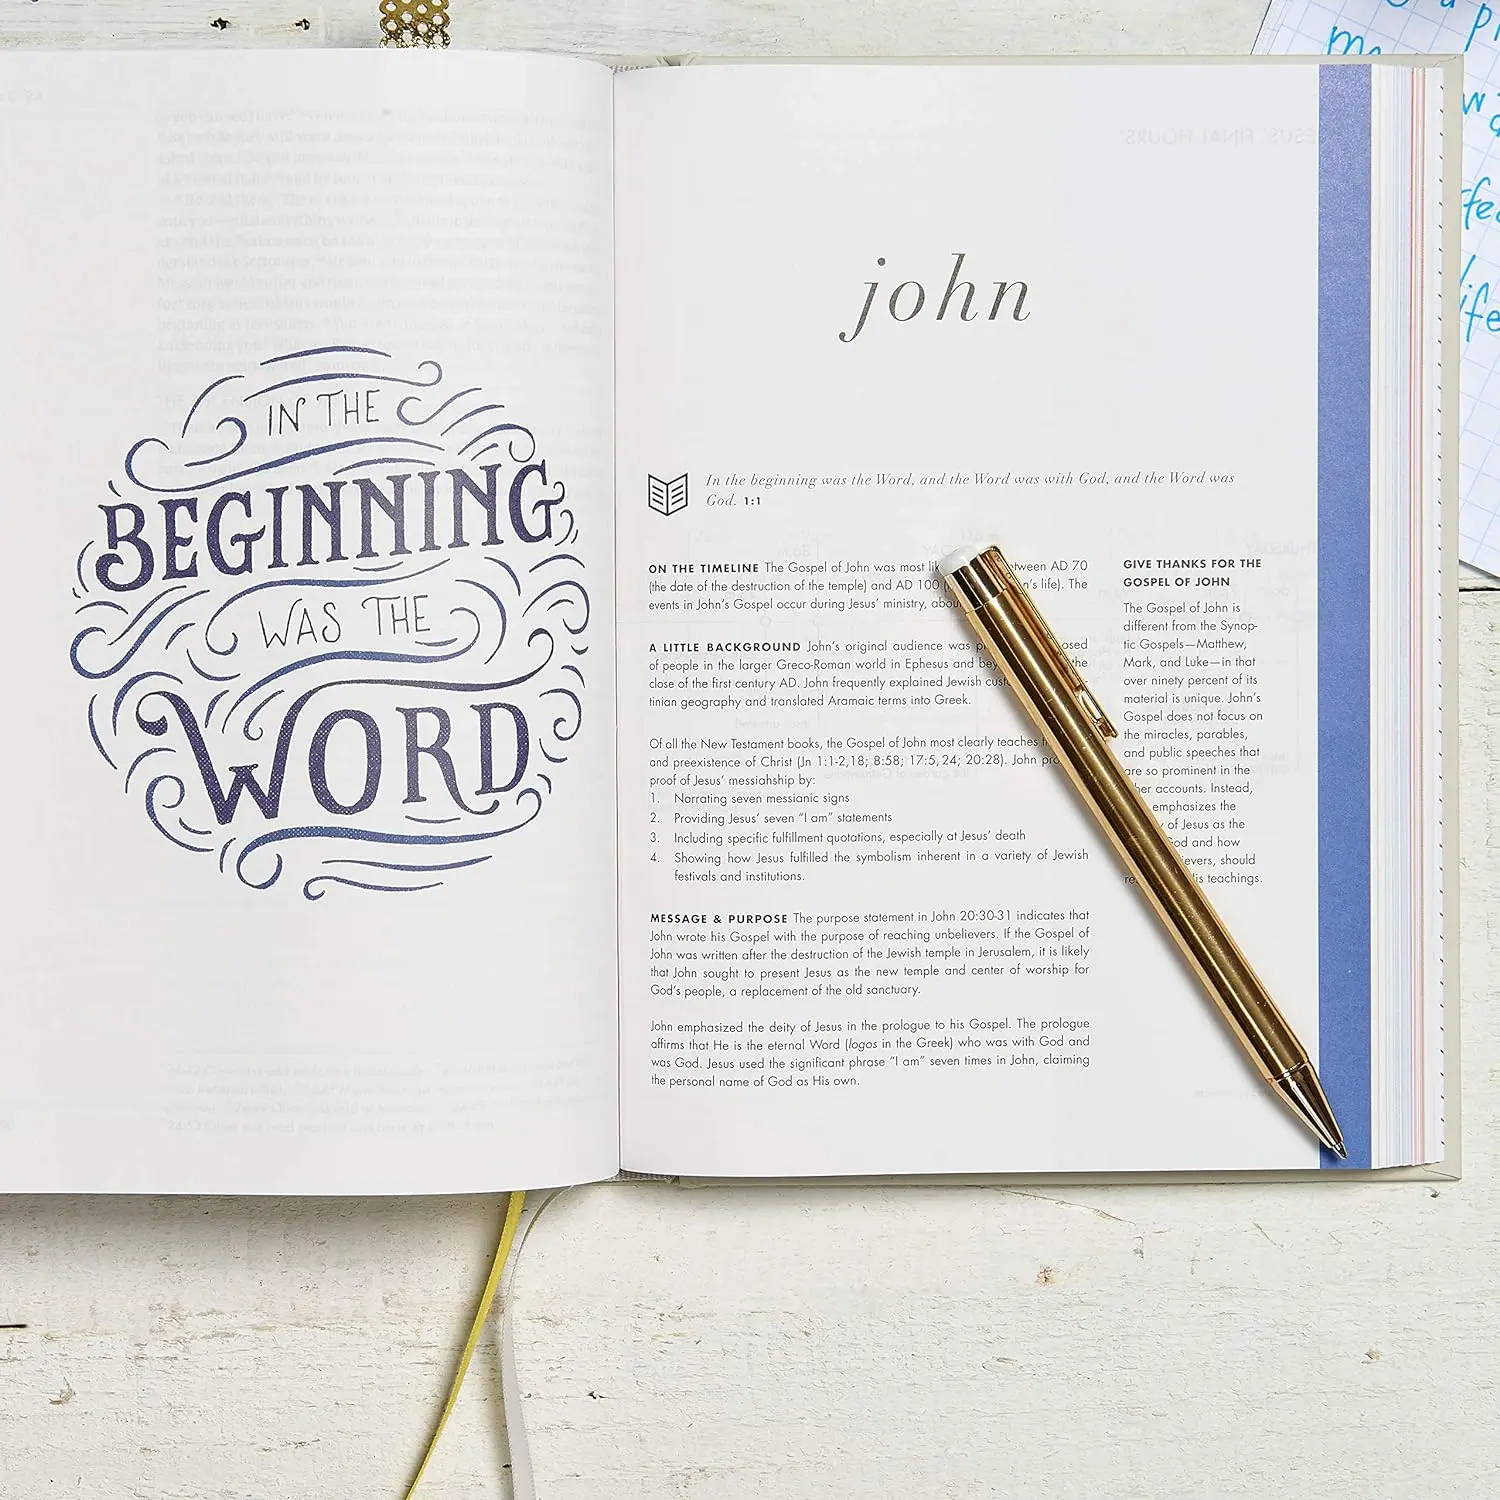 IN THE
BEGINNING
WAS THE
WORD
john
In the beginning was the Word, and the Word was with God, and the Word was
God. 1:1
ON THE TIMELINE The Gospel of John was most between AD 70
(the date of the destruction of the temple) and AD 100 life). The
events in John's Gospel occur during Jesus' ministry,
A LITTLE BACKGROUND John's original audience was
of people in the larger Greco-Roman world in Ephesus and the
close of the first century AD. John frequently explained Jewish
tinian geography and translated Aramaic terms into Greek.
Of all the New Testament books, the Gospel of John most clearly teaches
and preexistence of Christ (Jn 1:1-2,18; 8:58; 17:5, 24; 20:28). John
proof of Jesus' messiahship by:
1. Narrating seven messianic signs
2. Providing Jesus' seven "I am" statements
3. Including specific fulfillment quotations, especially at Jesus' death
4. Showing how Jesus fulfilled the symbolism inherent in a variety of Jewish
festivals and institutions.
MESSAGE & PURPOSE The purpose statement in John 20:30-31 indicates that
John wrote his Gospel with the purpose of reaching unbelievers. If the Gospel of
John was written after the destruction of the Jewish temple in Jerusalem, it is likely
that John sought to present Jesus as the new temple and center of worship for
God's people, a replacement of the old sanctuary.
John emphasized the deity of Jesus in the prologue to his Gospel. The prologue
affirms that He is the eternal Word (logos in the Greek) who was with God and
was God. Jesus used the significant phrase "I am" seven times in John, claiming
the personal name of God as His own.
GIVE THANKS FOR THE
GOSPEL OF JOHN
The Gospel of John is
different from the Synop-
tic Gospels—Matthew,
Mark, and Luke—in that
over ninety percent of its
material is unique. John's
Gospel does not focus on
the miracles, parables,
and public speeches that
are so prominent in the
accounts. Instead,
emphasizes the
of Jesus as the
God and how
should
teachings.